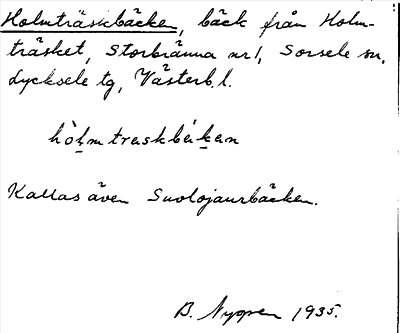 Holmträskbäcken, bäck från Holm-
träsket, Storbränna nr 1, Sorsele sn,
Lycksele tg, Västerb. l.
hòḷmtraskbèḵan
Kallas även Suolojaurbäcken.
B. Nyppen 1935.